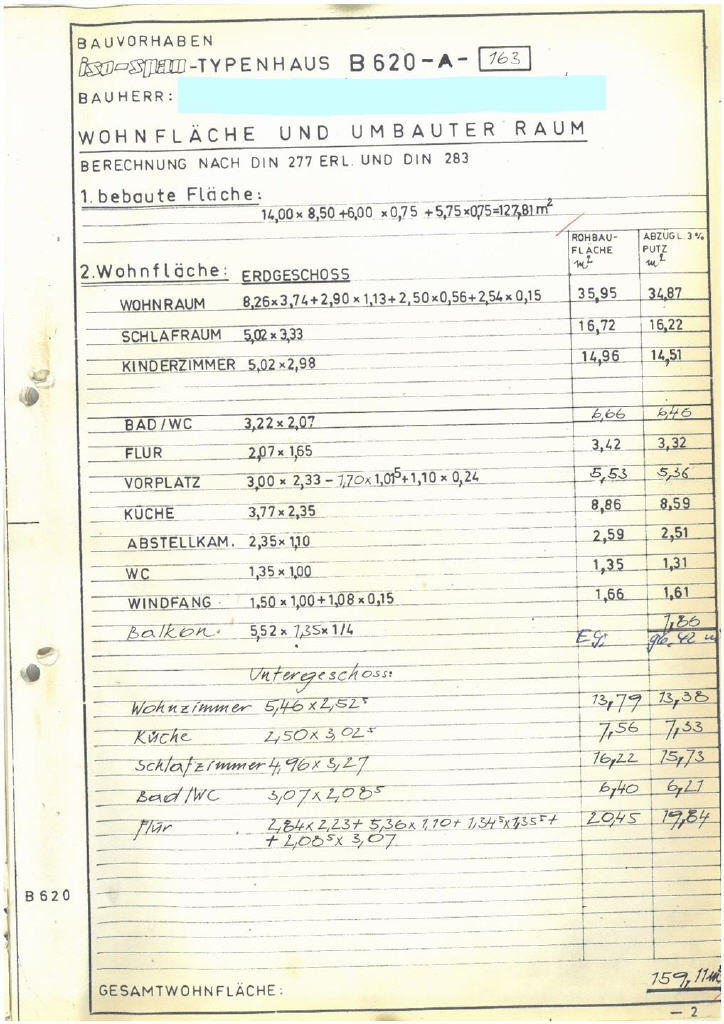 BAUVORHABEN
iso-span-TYPENHAUS B 620-A- 163
BAUHERR:
WOHNFLÄCHE UND UMBAUTER RAUM
BERECHNUNG NACH DIN 277 ERL. UND DIN 283
1. bebaute Fläche:
14,00 x 8,50 + 6,00 x 0,75 + 5,75 x 0,75 = 127,81 m²
ROHBAU- ABZÜGL. 3%
FLÄCHE PUTZ
m² m²
2. Wohnfläche: ERDGESCHOSS
WOHNRAUM 8,26 x 3,74 + 2,90 x 1,13 + 2,50 x 0,56 + 2,54 x 0,15 35,95 34,87
SCHLAFRAUM 5,02 x 3,33 16,72 16,22
KINDERZIMMER 5,02 x 2,98 14,96 14,51
BAD/WC 3,22 x 2,07 6,66 6,46
FLUR 2,07 x 1,65 3,42 3,32
VORPLATZ 3,00 x 2,33 - 1,70 x 1,01⁵ + 1,10 x 0,24 5,53 5,36
KÜCHE 3,77 x 2,35 8,86 8,59
ABSTELLKAM. 2,35 x 1,10 2,59 2,51
WC 1,35 x 1,00 1,35 1,31
WINDFANG 1,50 x 1,00 + 1,08 x 0,15 1,66 1,61
Balkon 5,52 x 1,35 x 1/4 1,86
EG: 96,42 m
Untergeschoss:
Wohnzimmer 5,46 x 2,52⁵ 13,79 13,38
Küche 2,50 x 3,02⁵ 7,56 7,33
Schlafzimmer 4,96 x 3,27 16,22 15,73
Bad/WC 3,07 x 2,08⁵ 6,40 6,21
Flur 2,84 x 2,23 + 5,36 x 1,10 + 1,34⁵ x 1,35⁵ + 20,45 19,84
+ 2,08⁵ x 3,07
B 620
GESAMTWOHNFLÄCHE: 159,11 m²
- 2